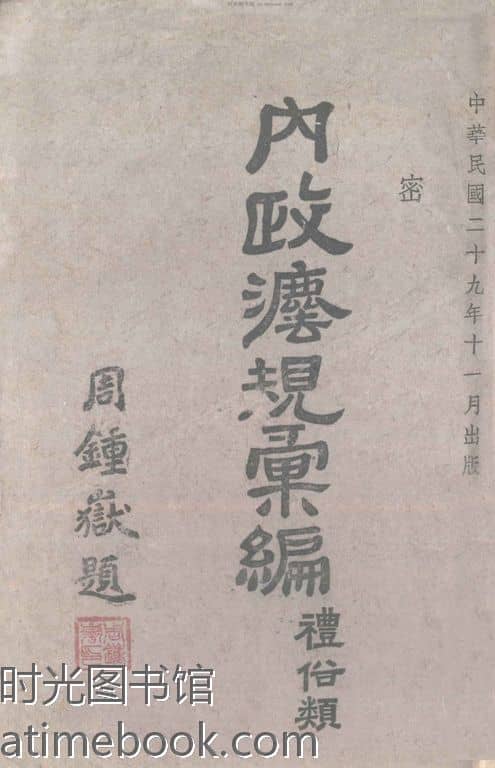 中華民國二十九年十一月出版
密
內政灋規彙編
禮俗類
周鍾嶽題
时光图书馆
atimebook.com